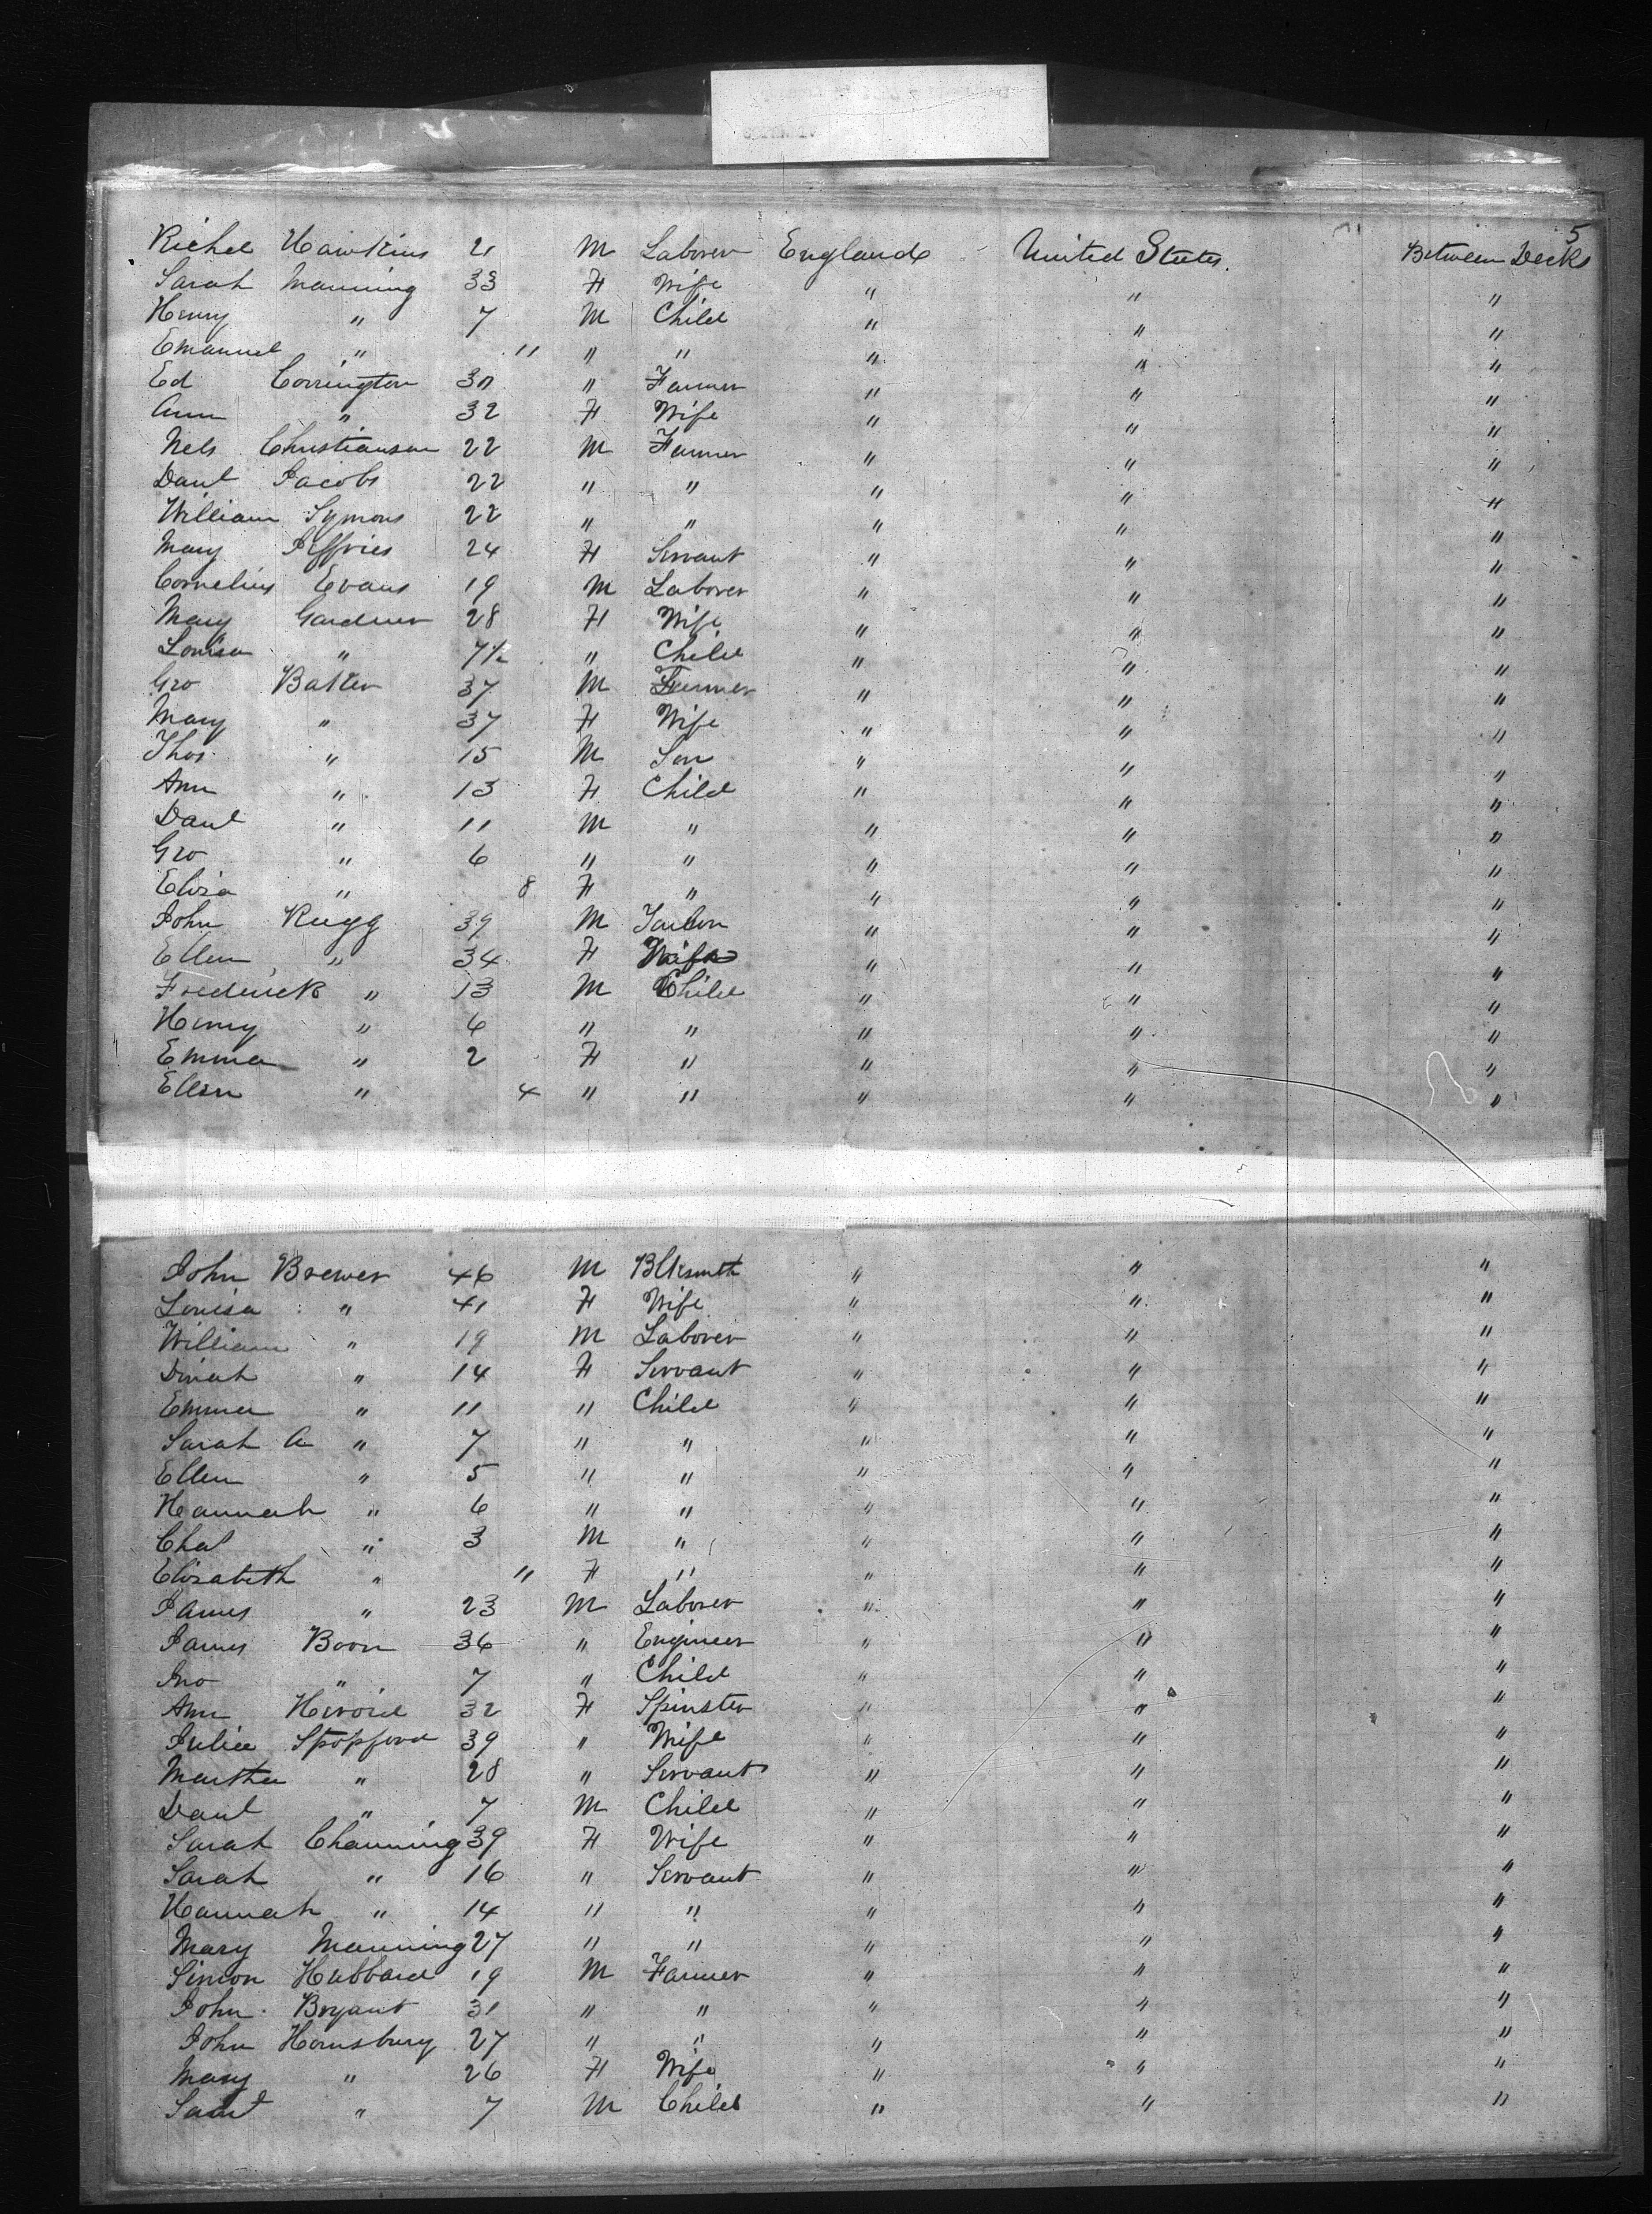 5
Richd Hawkins 21 M Laborer England United States. Between Decks
Sarah Manning 33 F Wife " " "
Henry " 7 M Child " " "
Emanuel " 11 " " " " "
Ed Corrington 30 " Farmer " " "
Ann " 32 F Wife " " "
Nels Christianson 22 M Farmer " " "
Danl Jacobs 22 " " " " "
William Symons 22 " " " " "
Mary Jeffries 24 F Servant " " "
Cornelius Evans 19 M Laborer " " "
Mary Gardner 28 F Wife " " "
Louisa " 7½ " Child " " "
Geo Baker 37 M Farmer " " "
Mary " 37 F Wife " " "
Thos " 15 M Son " " "
Ann " 13 F Child " " "
Danl " 11 M " " " "
Geo " 6 " " " " "
Eliza " 8 F " " " "
John Rugg 39 M Tailor " " "
Ellen " 34 F Wife " " "
Frederick " 13 M Child " " "
Henry " 6 " " " " "
Emma " 2 F " " " "
Ellen " 4 " " " " "
John Brewer 46 M Blksmith " " "
Louisa " 41 F Wife " " "
William " 19 M Laborer " " "
Dinah " 14 F Servant " " "
Emma " 11 " Child " " "
Sarah A " 7 " " " " "
Ellen " 5 " " " " "
Hannah " 6 " " " " "
Chas " 3 M " " " "
Elizabeth " 11 F " " " "
James " 23 M Laborer " " "
James Boon 36 " Engineer " " "
Jno " 7 " Child " " "
Ann 32 F Spinster " " "
Julia Stopford 39 " Wife " " "
Martha " 28 " Servant " " "
Danl " 7 M Child " " "
Sarah Channing 39 F Wife " " "
Sarah " 16 " Servant " " "
Hannah " 14 " " " " "
Mary Manning 27 " " " " "
Simon Hubbard 19 M Farmer " " "
John Bryant 31 " " " " "
John Hornsbury 27 " " " " "
Mary " 26 F Wife " " "
Saml " 7 M Child " " "